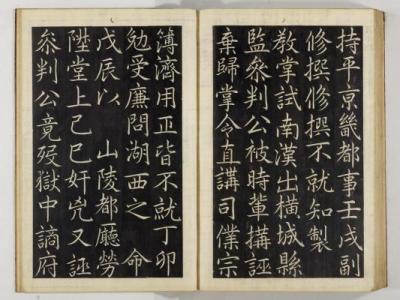 持平京畿都事壬戌副
修撰修撰不就知製
教掌試南漢出橫城縣
監叅判公被時輩搆誣
棄歸掌令直講司僕宗
簿濟用正皆不就丁卯
勉受廉問湖西之 命
戊辰以 山陵都廳勞
陞堂上己巳奸兇又誣
叅判公竟殁獄中謫府